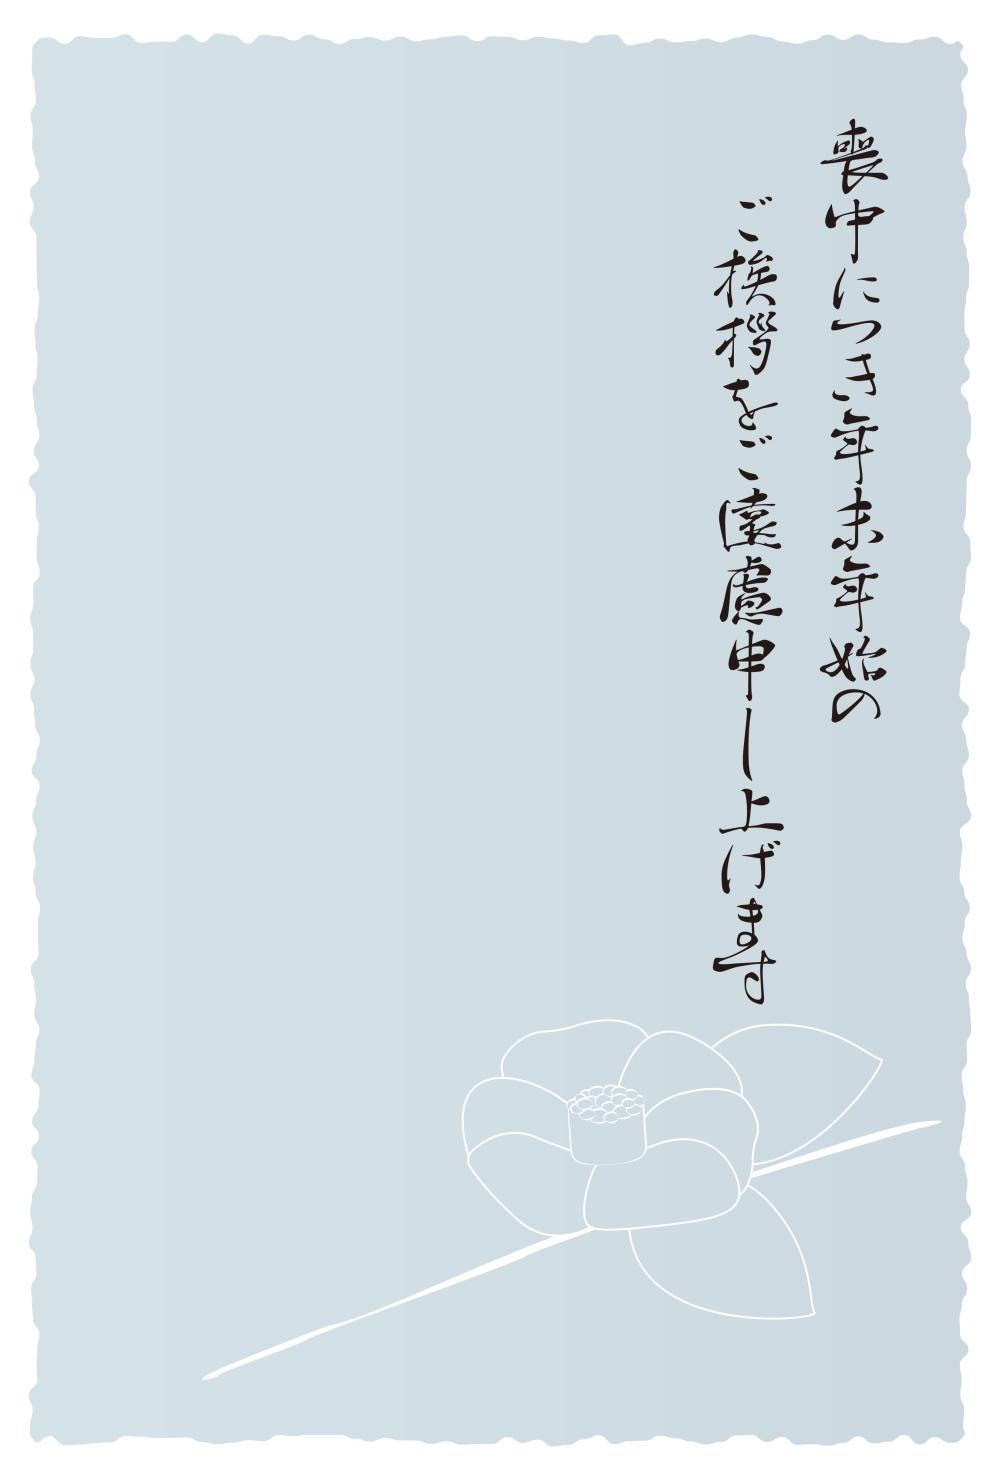 喪中につき年末年始の
ご挨拶をご遠慮申し上げます